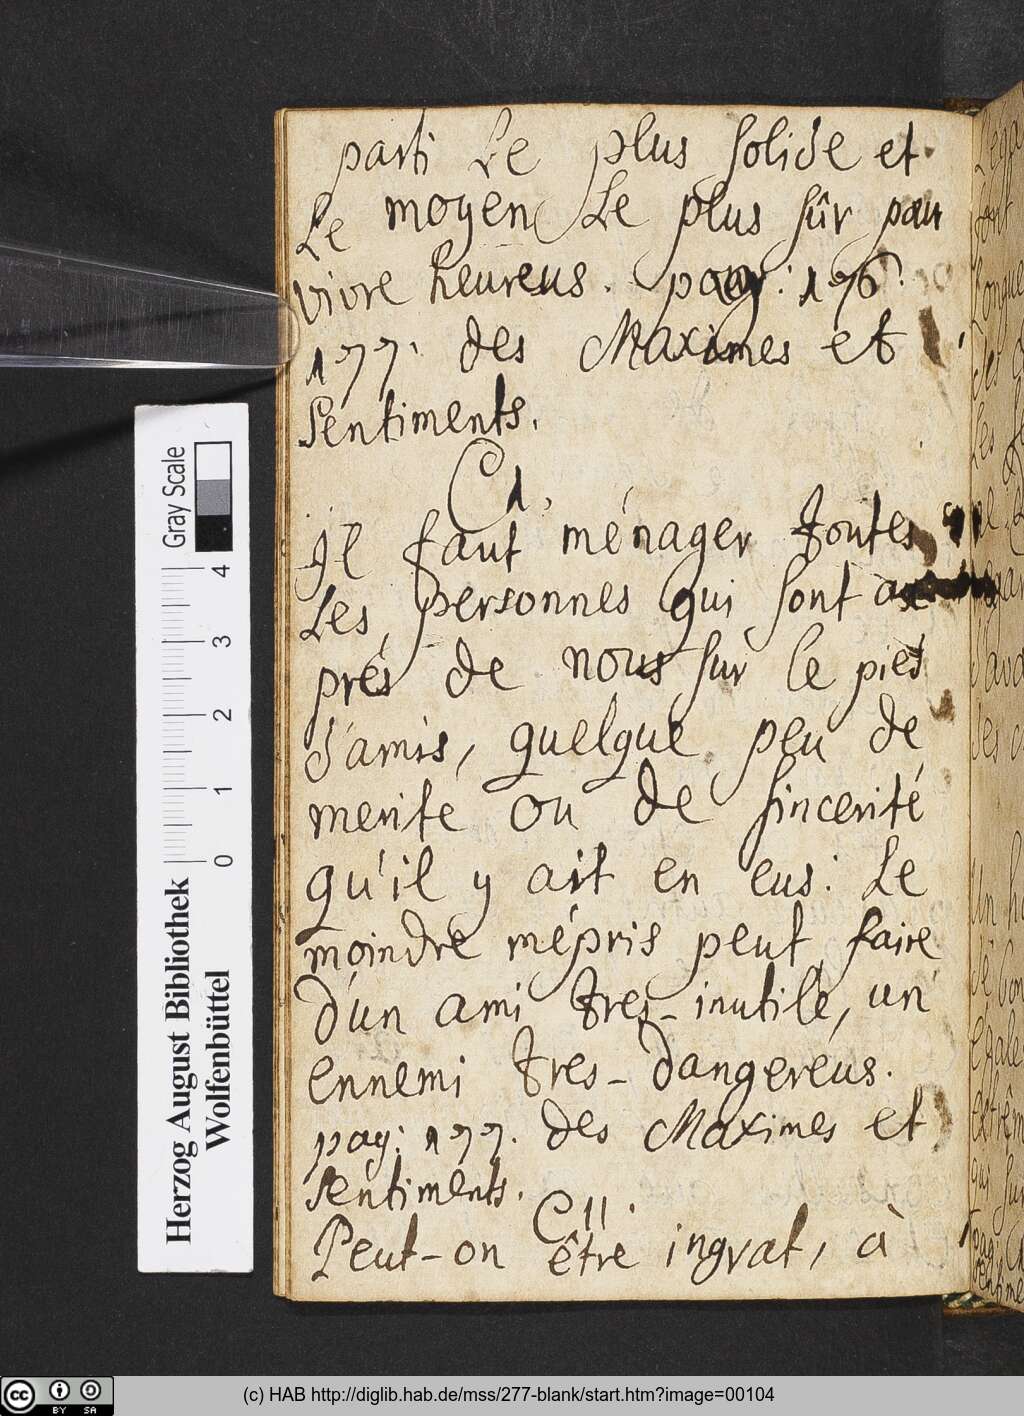 parti Le plus solide et
Le moyen Le plus sûr pour
vivre heureus. pag: 176.
177. des Maximes et
Sentiments.
C1.
Il faut ménager toutes
Les personnes qui sont au
prés de nous sur le pied
d'amis, quelque peu de
merite ou de sincerité
qu'il y ait en eus: Le
moindre mépris peut faire
d'un ami tres-inutile, un
ennemi tres-dangereus.
pag: 177. des Maximes et
Sentiments.
C11.
Peut-on être ingrat, à
Herzog August Bibliothek
Wolfenbüttel
Gray Scale
0 1 2 3 4
cc BY SA
(c) HAB http://diglib.hab.de/mss/277-blank/start.htm?image=00104